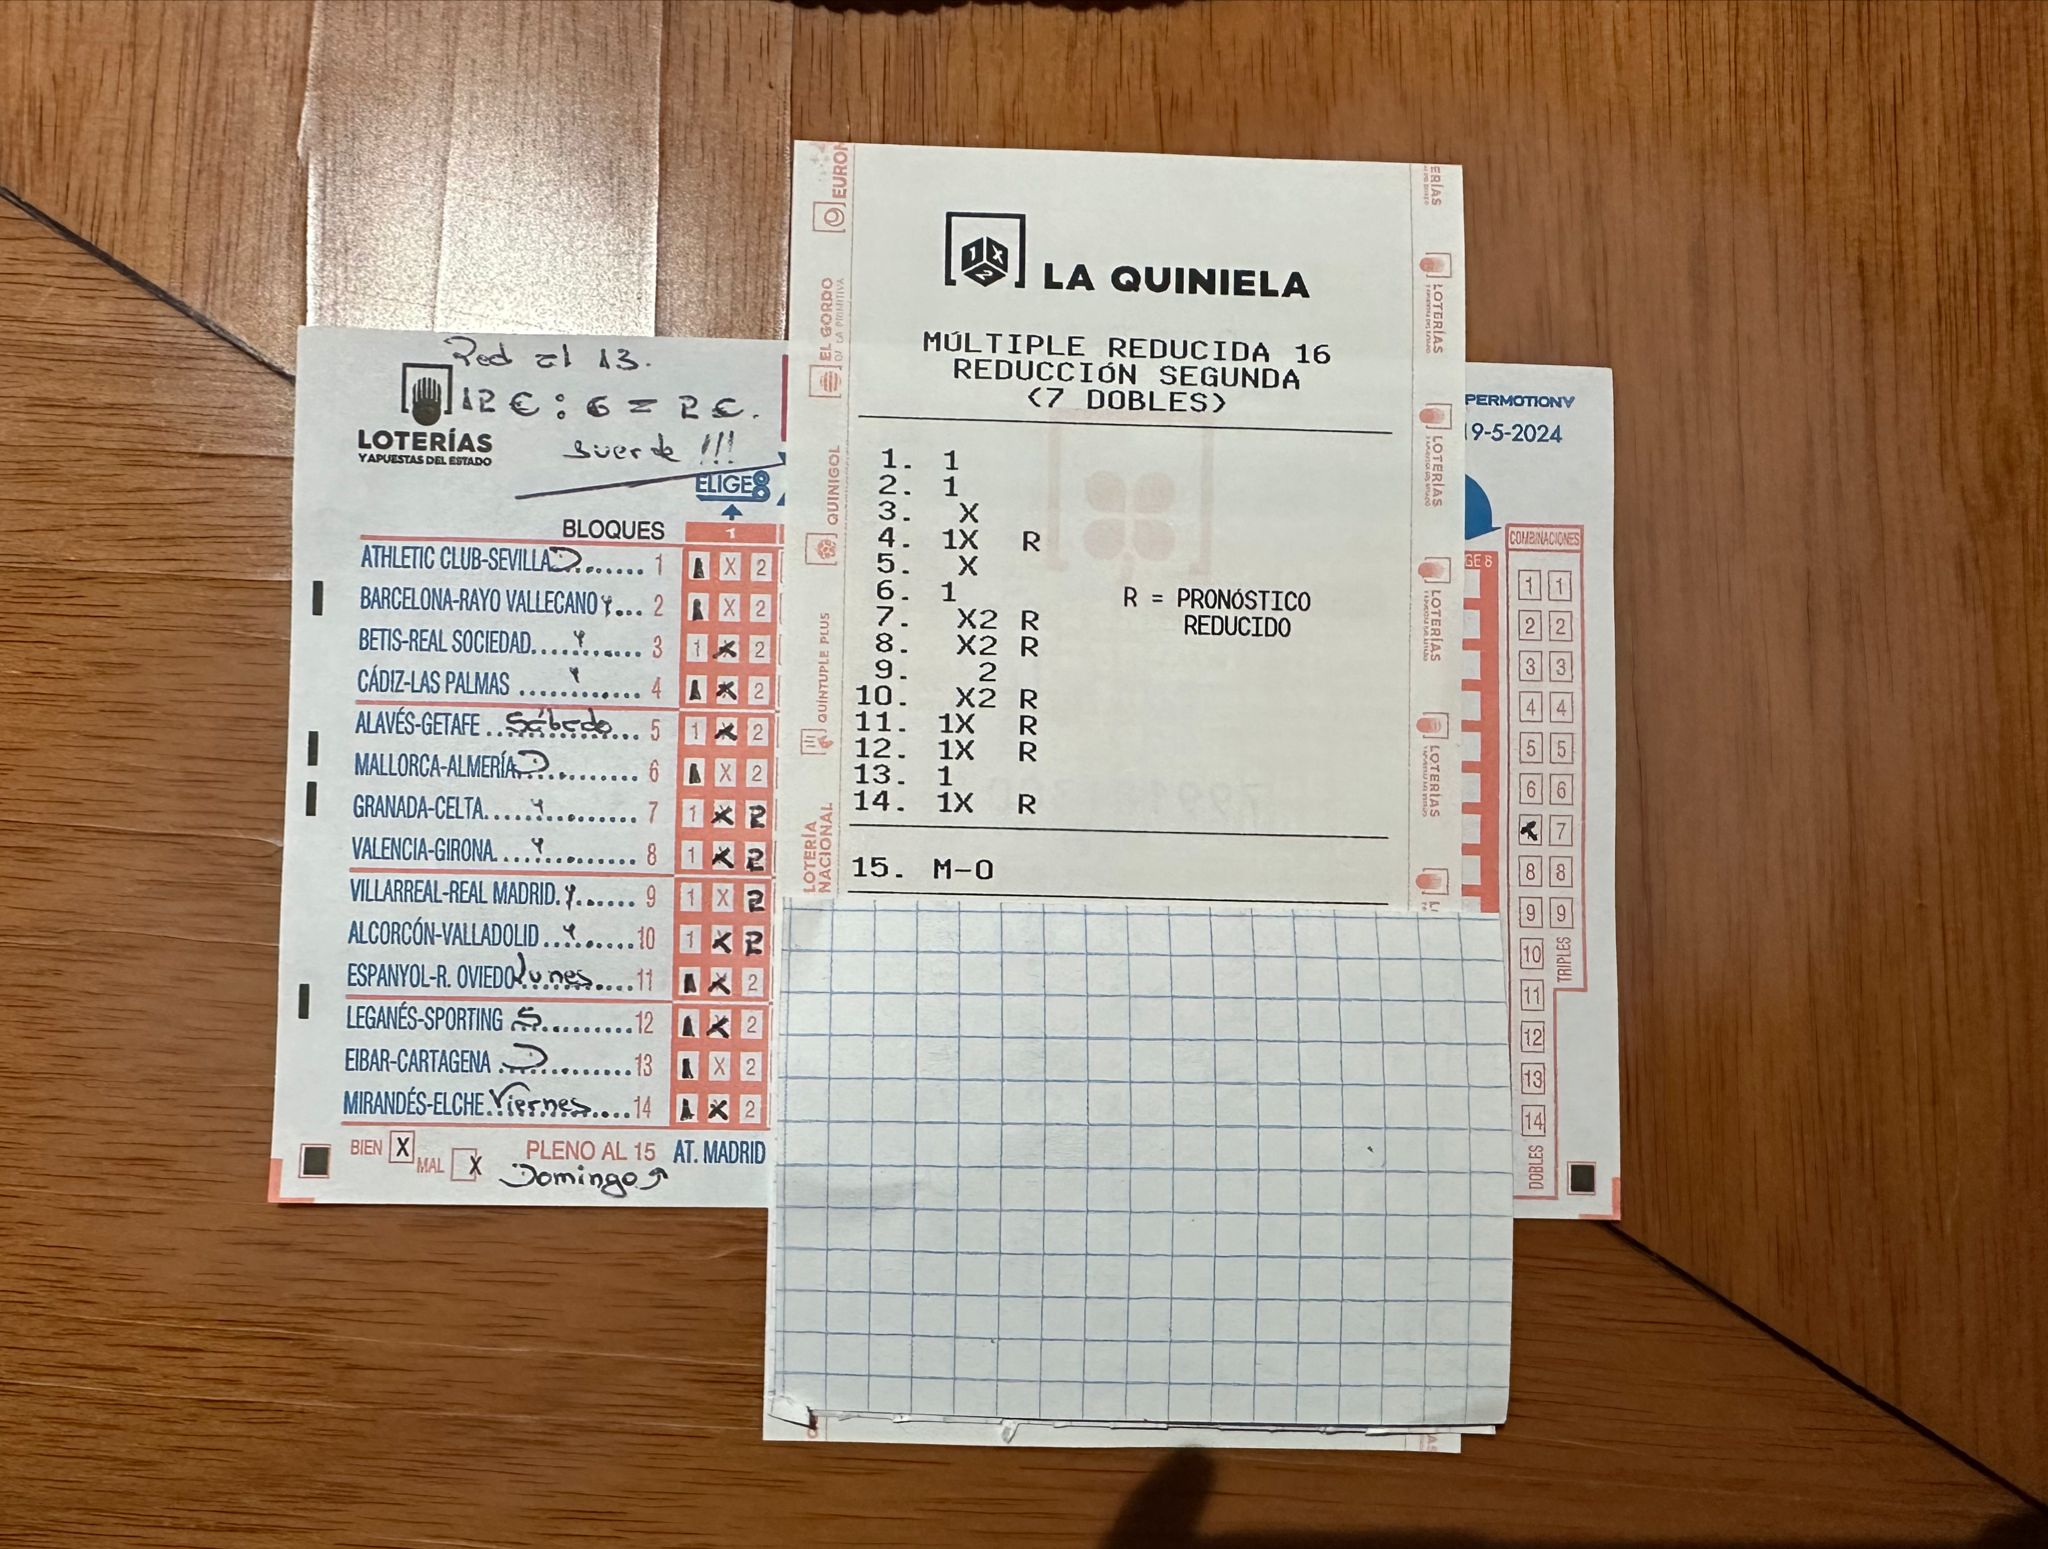 Red al 13.
12 € : 6 = 2 €.
suerte !!!
LOTERÍAS
Y APUESTAS DEL ESTADO
ELIGE8
BLOQUES 1
ATHLETIC CLUB-SEVILLA D ....... 1 1 X 2
BARCELONA-RAYO VALLECANO Y... 2 1 X 2
BETIS-REAL SOCIEDAD....Y...... 3 1 X 2
CÁDIZ-LAS PALMAS ......Y...... 4 1 X 2
ALAVÉS-GETAFE ..Sábado... 5 1 X 2
MALLORCA-ALMERÍA D ......... 6 1 X 2
GRANADA-CELTA.....Y......... 7 1 X 2
VALENCIA-GIRONA....Y......... 8 1 X 2
VILLARREAL-REAL MADRID.Y...... 9 1 X 2
ALCORCÓN-VALLADOLID ..Y......10 1 X 2
ESPANYOL-R. OVIEDO Lunes....11 1 X 2
LEGANÉS-SPORTING S.........12 1 X 2
EIBAR-CARTAGENA .D...........13 1 X 2
MIRANDÉS-ELCHE Viernes....14 1 X 2
BIEN X MAL X PLENO AL 15 AT. MADRID
Domingo
LA QUINIELA
MÚLTIPLE REDUCIDA 16
REDUCCIÓN SEGUNDA
(7 DOBLES)
1. 1
2. 1
3. X
4. 1X R
5. X
6. 1
7. X2 R
8. X2 R
9. 2
10. X2 R
11. 1X R
12. 1X R
13. 1
14. 1X R
R = PRONÓSTICO
REDUCIDO
15. M-O
EURON
EL GORDO
DE LA PRIMITIVA
QUINIGOL
QUÍNTUPLE PLUS
LOTERÍA
NACIONAL
LOTERÍAS
LOTERÍAS
LOTERÍAS
LOTERÍAS
LOTERÍAS
PERMOTIONV
19-5-2024
COMBINACIONES
GE 8
1 1
2 2
3 3
4 4
5 5
6 6
7
8 8
9 9
10
11
12
13
14
TRIPLES
DOBLES